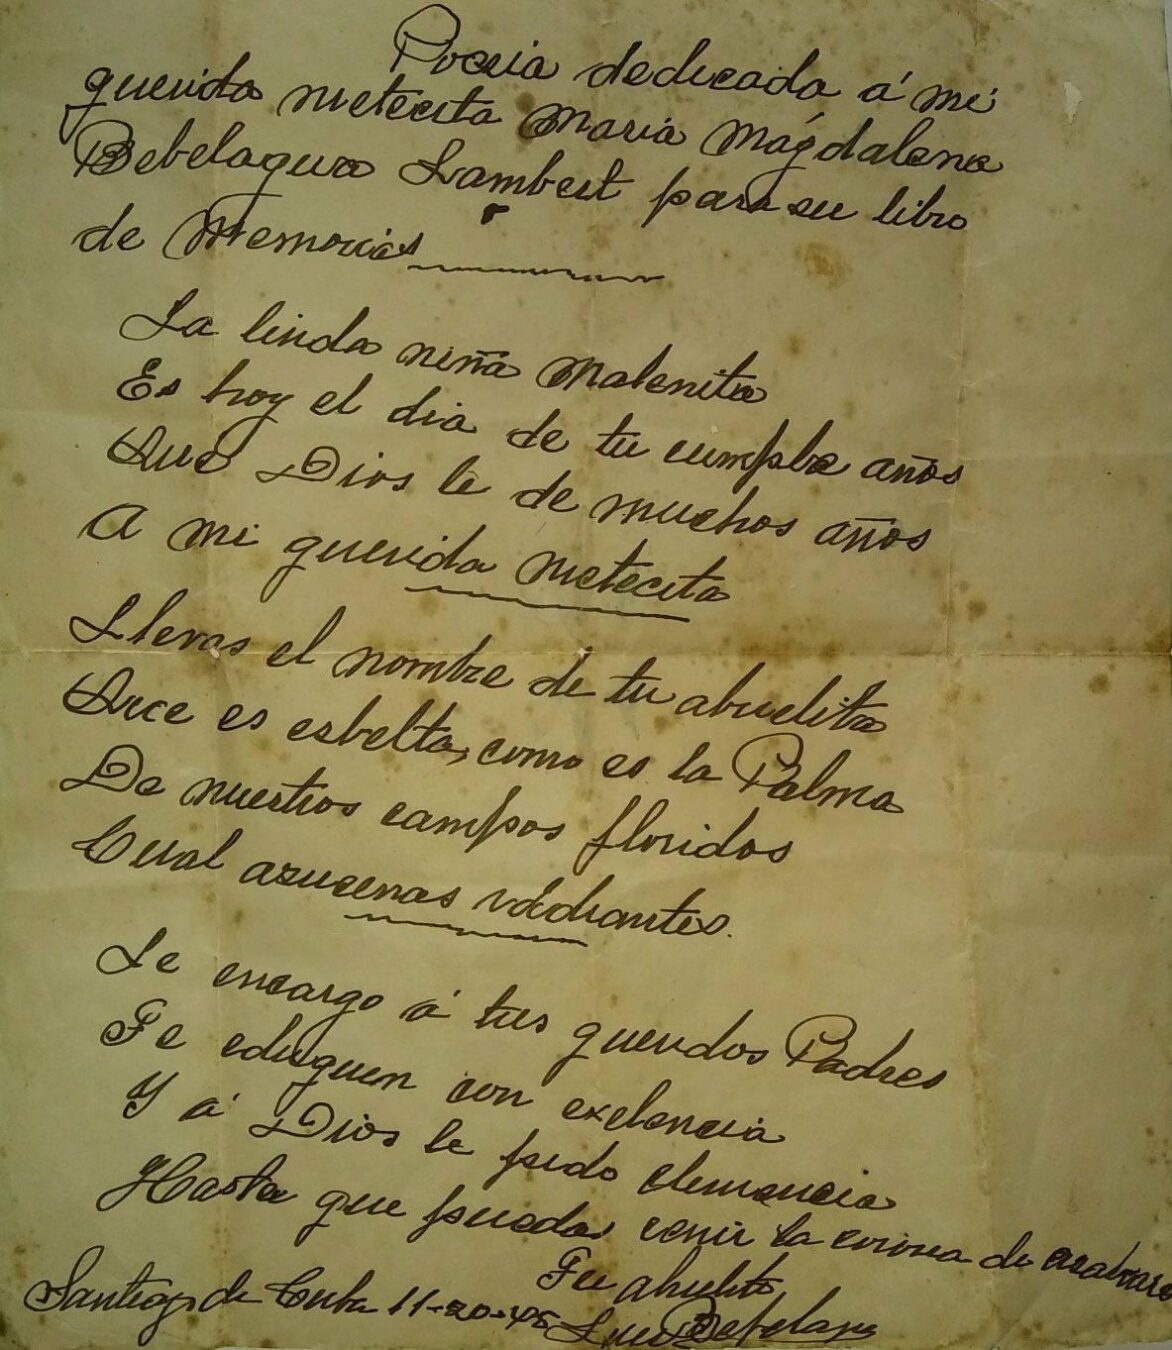 Poecia dedicada á mi
querida nietecita Maria Mágdalena
Bebelagua Lambert para su libro
de Memorias
La linda niña Malenita
Es hoy el dia de tu cumple años
Que Dios le de muchos años
A mi querida nietecita
Llevas el nombre de tu abuelita
Que es esbelta, como es la Palma
De nuestros campos floridos
Cual azucenas
Le encargo á tus queridos Padres
Te eduquen con exelencia
Y á Dios le pido clemencia
Hasta que puedas cenir la corona de azahares
Tu abuelito
Santiago de Cuba 11-20-45 Luis Bebelagua